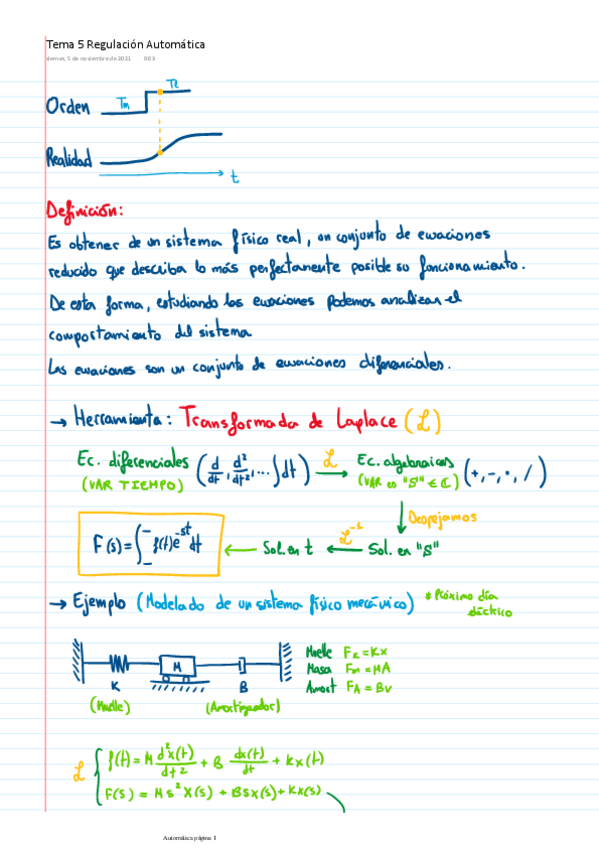 Tema 5 Regulación Automática
viernes, 5 de noviembre de 2021
Orden Tm
Realidad
t
Definición:
Es obtener de un sistema físico real, un conjunto de ecuaciones
reducido que describa lo más perfectamente posible su funcionamiento.
De esta forma, estudiando las ecuaciones podemos analizar el
comportamiento del sistema
Las ecuaciones son un conjunto de ecuaciones diferenciales.
→ Herramienta: Transformada de Laplace (ℒ)
Ec. diferenciales (d/dt, d²/dt², ... ∫dt) ℒ→ Ec. algebraicas (+, -, ·, /)
(VAR TIEMPO) (VAR en "S" ∈ ℂ)
↓ Despejamos
F(s) = ∫ f(t)e^-st dt ← Sol. en t ← ℒ^-1 Sol. en "S"
→ Ejemplo (Modelado de un sistema físico mecánico) * Próximo día
M
K B
(Muelle) (Amortiguador)
Muelle F_K = Kx
Masa F_M = MA
Amort F_A = Bv
ℒ { f(t) = M d²x(t)/dt² + B dx(t)/dt + Kx(t)
F(s) = Ms²X(s) + BsX(s) + KX(s)
Automática página 1